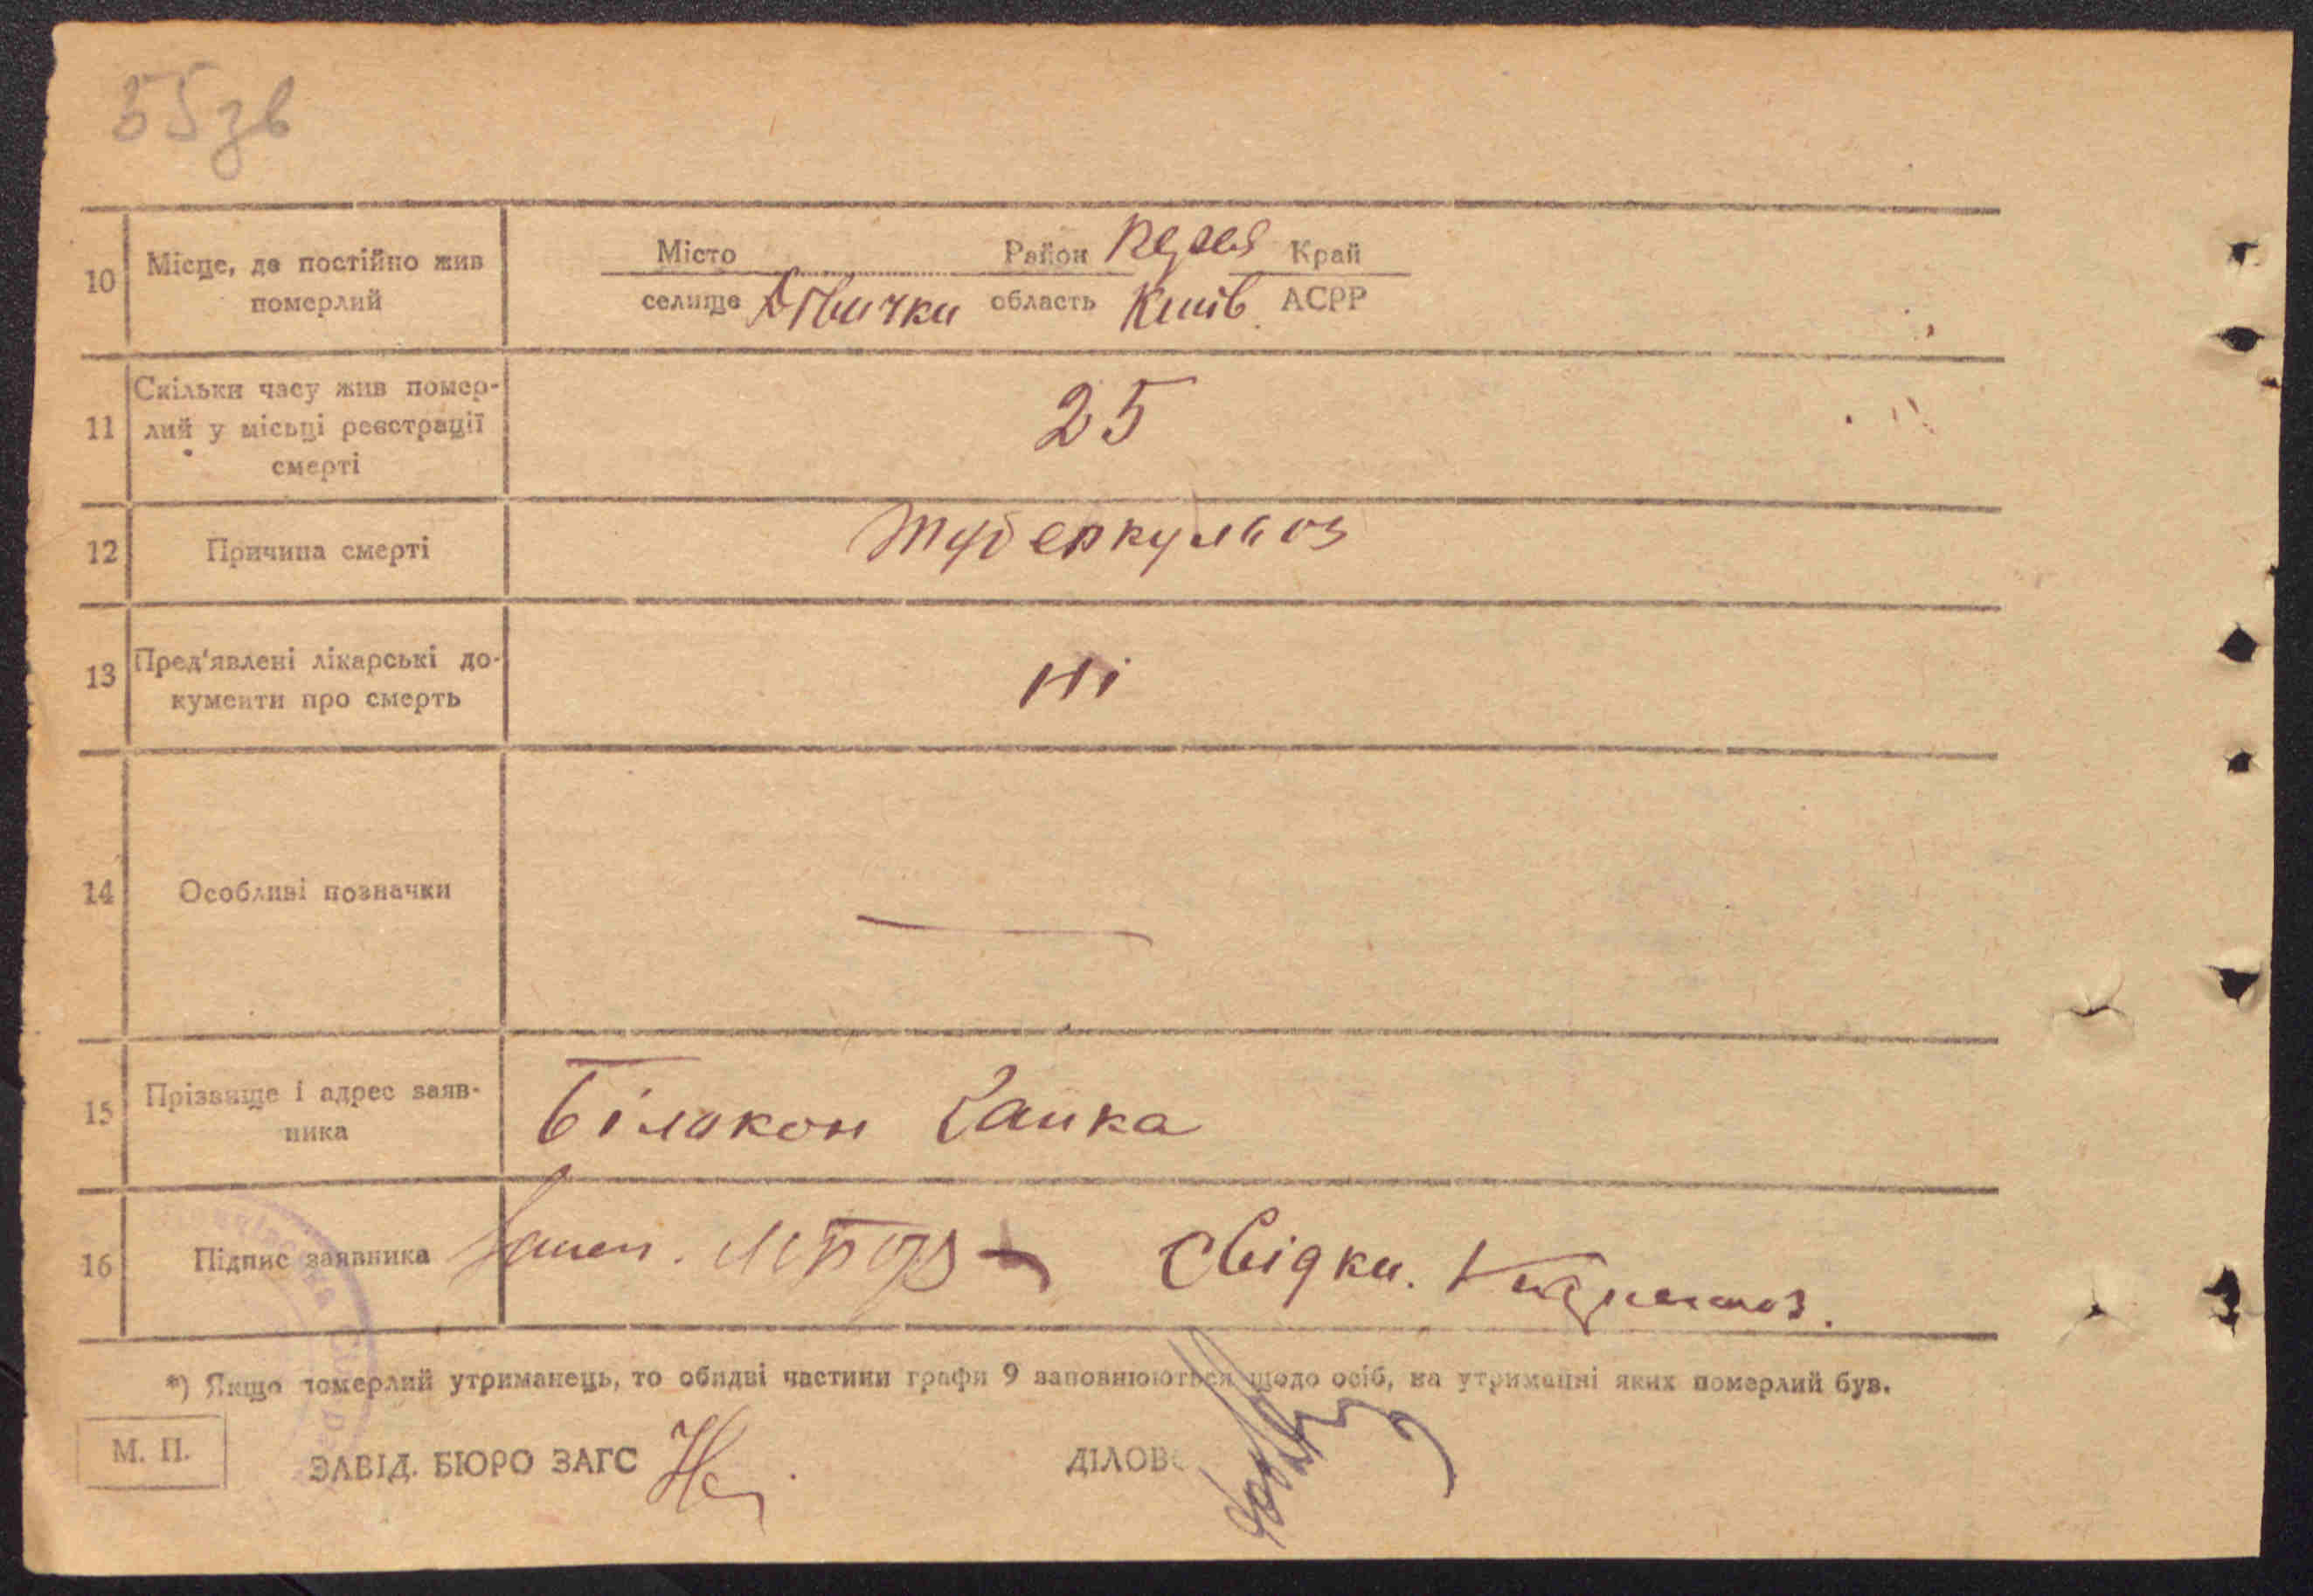 55зв
10 Місце, де постійно жив померлий
Місто Район Край
селище Дівички область Київ. АСРР
11 Скільки часу жив помер-
лий у місьці реєстрації
смерті
25
12 Причина смерті
туберкульоз
13 Пред'явлені лікарські до-
кументи про смерть
Ні
14 Особливі позначки
—
15 Прізвище і адрес заяв-
ника
Білокон Ганка
16 Підпис заявника
Свідки.
*) Якщо померлий утриманець, то обидві частини графи 9 заповнюються щодо осіб, на утриманні яких померлий був.
М. П.
ЗАВІД. БЮРО ЗАГС
ДІЛОВ